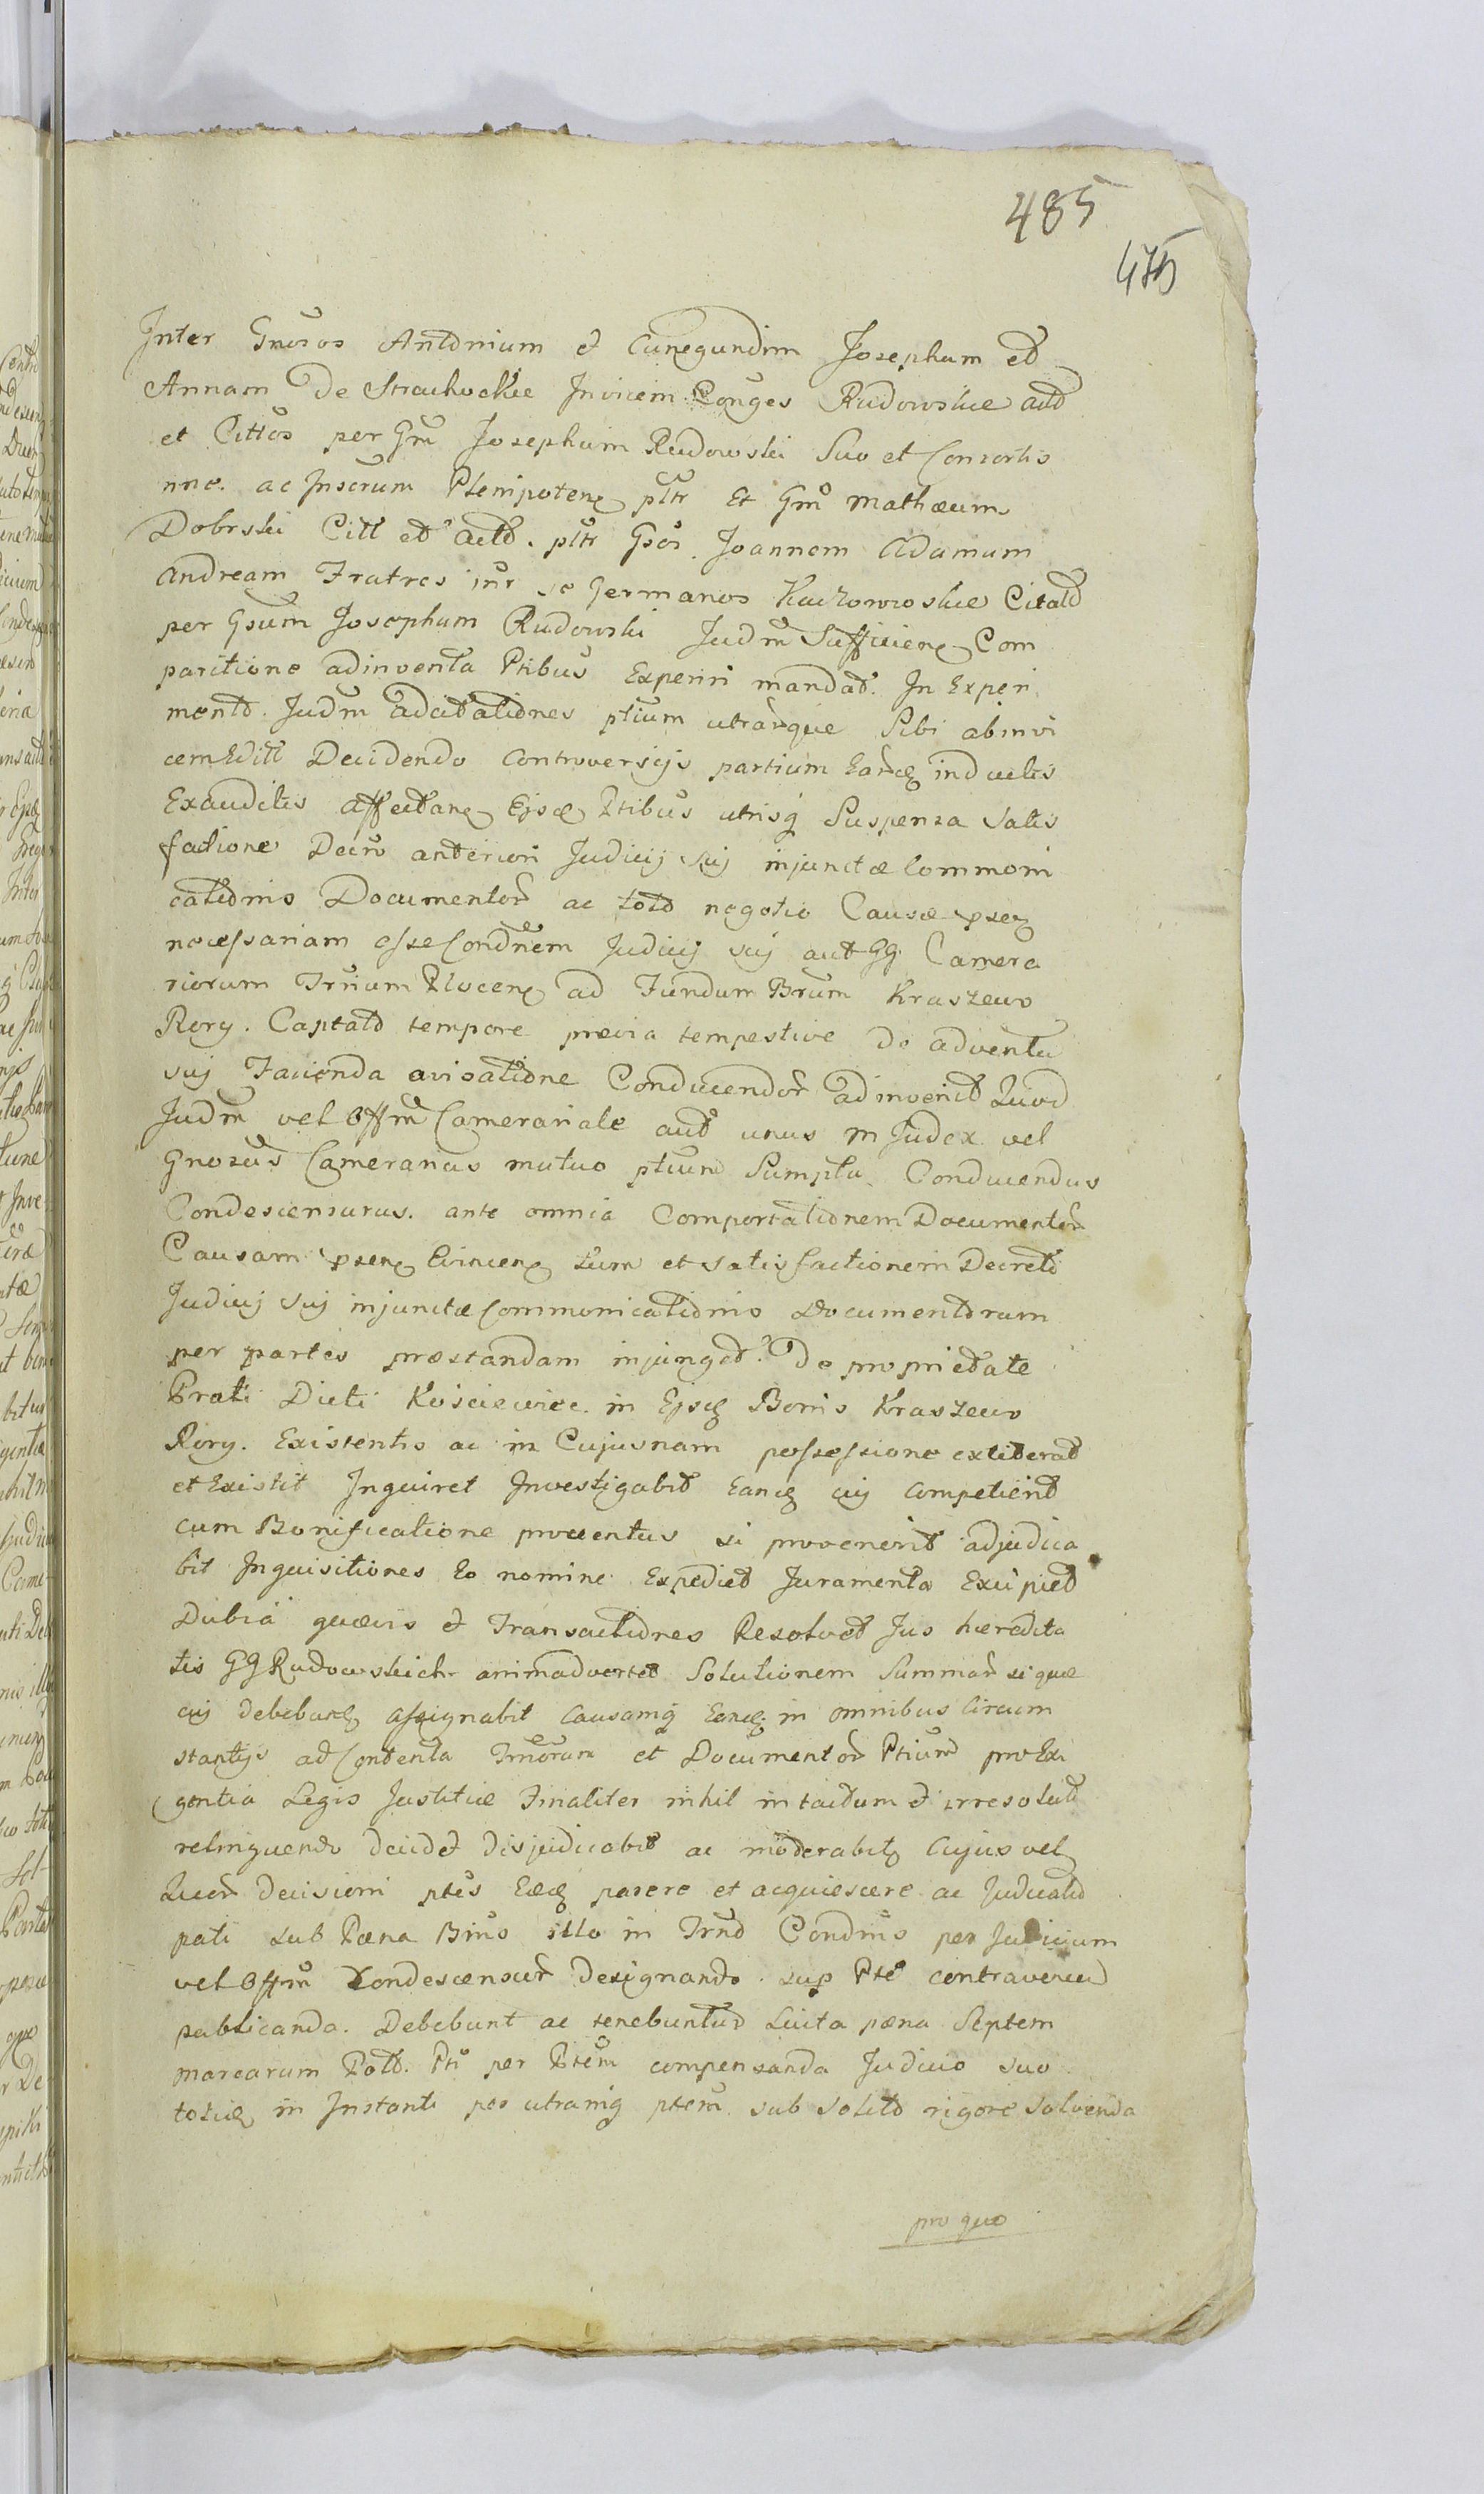 485
475
Inter Gnosos Antonium et Cunegundim Josephum et
Annam de Strachockie Invicem Conges Rudowskie act
et Cittos per Gm Josephum Rudowski Suo et Consortis
nne. ac Insorum Plenipoten pltr Et Gm Mathæum
Dobrski Citt et act. pltr Gsos Joannem Adamum
Andream Fratres inr se Germanos Kaczorowskie Citat
per Gsum Josephum Rudowski Judm Sufficien Com
paritione adinventa Ptibus Experiri mandat. In Experi
mento. Judm adcitationes ptium utrarque Sibi abinvi
cem Editt Decidendo Controversijs partium Earq inductis
Exauditis affectan Ejsq Ptibus utrisq Suspensa Satis
factione Decro anteriori Judicij sui injunctæ Commoni
cationis Documentor ac toto negotio Causæ psen
necessariam esse Condnem Judicij sui aut GG Camera
riorum Trium Plocen ad Fundum Brum Kraszewo
Rory. Captato tempore prævia tempestive de adventu
sui Facienda avisatione Conducendor adinvenit Quod
Judm vel Offm Camerariale aut unus M Judex vel
Gnosus Camerarius mutuo ptium Sumptu Conducendus
Condescensurus. ante omnia Comportationem Documentor
Causam psen Evincen tum et satisfactionem Decreti
Judicij Sui injunctæ Commonicationis Documentorum
per partes præstandam injunget. De proprietate
Prati Dicti Kościewice. in Ejsq Bonis Kraszewo
Rory. Existentis ac in Cujusnam possessione extiterat
et Existit Inquiret Investigabit Eanq cui competierit
cum Bonificatione proventus si provenerit adjudica
bit Inquisitiones Eo nomine Expediet Juramenta Excipiet
Dubia quævis et Transactiones Resolvet Jus hæredita
tis GG Rudowskich animadvertet Solutionem Summar si quæ
cui debebunt assignabit Causamq Eanq in omnibus Circum
stantijs ad Contenta Tmorum et Documentor Ptium pro Exi
gentia Legis Justitiæ Finaliter nihil intactum et irresolut
relinquendo decidet disjudicabit ac moderabit Cujus vel
Quor decisioni ptes Eæq parere et acquiescere ac Judicato
pati sub Pæna Bnis illo in Trno Condnis per Judicium
vel Offm Condescensur designando sup Pte contraven
publicanda. Debebunt ac tenebuntur Luita pæna Septem
marcarum Polt. Pti per Ptem compensanda Judicio suo
totiq in Instanti per utramq ptem sub solito rigore solvenda
pro quo